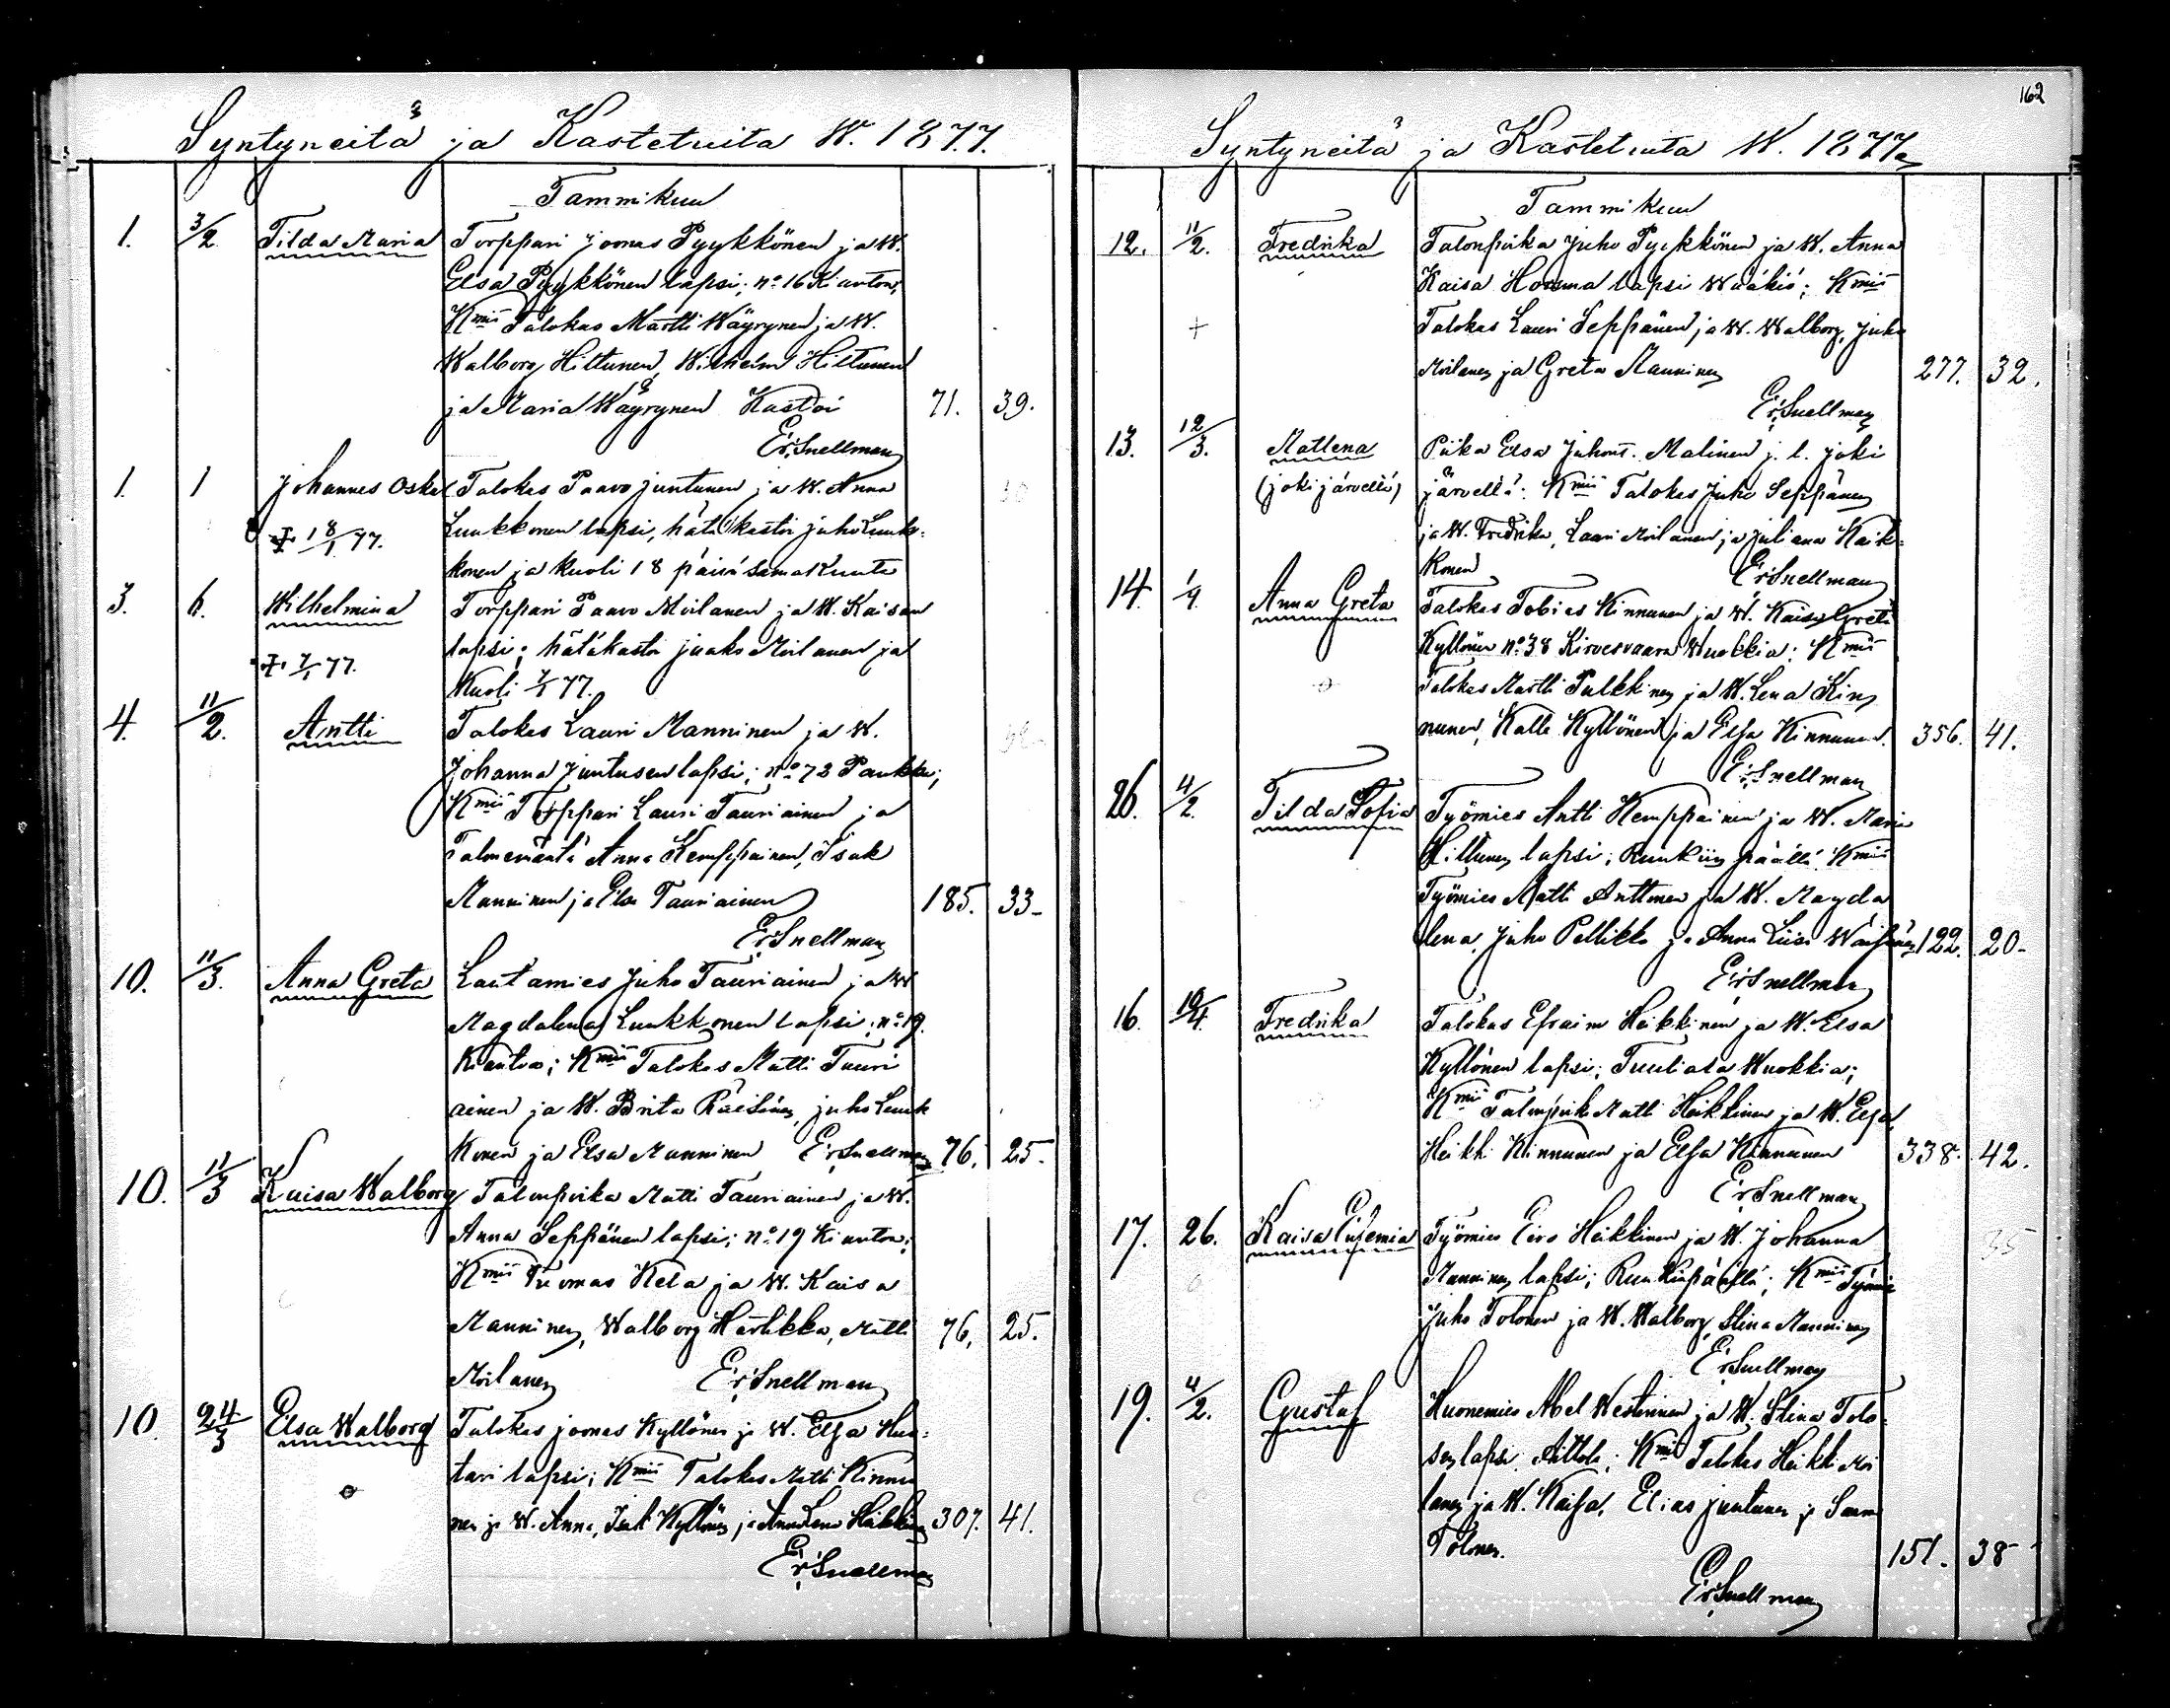 162
Syntyneitä ja Kastetuita W. 1877.
Tammikuu
1. 3/2. Tilda Maria Torppari Joonas Pyykkönen ja W.
Elsa Pyykkönen lapsi; no 16 Kianton;
Kmii Talokas Martti Wäyrynen ja W.
Walborg Hiltunen, Wilhelm Hiltunen
ja Maria Wäyrynen Kastoi 71. 39.
Er. Snellman
1. 1 Johannes Oskar Talokas Paavo Juntunen ja W. Anna
† 18/1 77. Luukkonen lapsi, hätäkastoi Juho Luuk-
konen ja kuoli 18 päivä samakuuta
3. 6. Wilhelmina Torppari Paavo Moilanen ja W. Kaisan
lapsi; hätäkastoi Jaako Moilanen ja
† 7/1 77. Kuoli 7/1 77.
4. 11/2. Antti Talokas Lauri Manninen ja W.
Johanna Juntusen lapsi; no 72
Kmii Torppari Lauri Tauriainen ja
Talonemäntä Anna Kemppainen, Isak
Manninen ja Elsa Tauriainen 185. 33.
Er. Snellman
10. 11/3. Anna Greta Lautamies Juho Tauriainen ja W
Magdalena Luukkonen lapsi; no 19.
Kianton; Kmii Talokas Matti Tauri
ainen ja W. Brita Räesänen, Juho Luuk
konen ja Elsa Manninen Er. Snellman 76. 25.
10. 11/3 Kaisa Walborg Talonpoika Matti Tauriainen ja W.
Anna Seppänen lapsi; no 19 Kianton;
Kmii Tuomas Kela ja W. Kaisa
Manninen, Walborg Härkikka, Matti 76. 25.
Moilanen Er. Snellman
10. 24/3 Elsa Walborg Talokas Joonas Kyllönen ja W. Elsa Huo-
tari lapsi; Kmii Talokas Matti Kinnu
nen ja W. Anna, Isak Kyllönen ja Anna Lena Heikkinen 307. 41.
Er. Snellman
Syntyneitä ja Kastetuita W. 1877
Tammikuu
12. 11/2. Fredrika Talonpoika Juho Pyykkönen ja W. Anna
Kaisa Homma lapsi Wääkiö; Kmii
Talokas Lauri Seppänen ja W. Walborg, Juho
Moilanen ja Greta Manninen 277. 32.
Er. Snellman
13. 12/3. Matlena Piika Elsa Juhont. Malinen j. l. Joki
(jokijärvellä) järvellä: Kmii Talokas Juho Seppänen
ja W. Fredrika, Lauri Moilanen ja Juliana Kaik-
konen Er. Snellman
14. 1/4. Anna Greta Talokas Tobias Kinnunen ja W. Kaisa Greta
Kyllönen no 38 Kirvesvaara Wuokkia; Kmii
Talokas Martti Pulkkinen ja W. Lena Kin
nunen, Kalle Kyllönen ja Elsa Kinnunen. 356. 41.
Er. Snellman
26. 11/2. Tilda Sofia Työmies Antti Kemppainen ja W. Maria
Hiltunen lapsi; Ruukiin päällä Kmii
Työmies Matti Anttonen ja W. Magda
lena, Juho Pellikka ja Anna Liisa Wäisänen 122. 20.
Er. Snellman
16. 19/4. Fredrika Talokas Efraim Heikkinen ja W. Elsa
Kyllönen lapsi; Tuuliala Wuokkia;
Kmii Talonpoik Matti Heikkinen ja W. Elsa
Heikki Kinnunen ja Elsa Kinnunen 338. 42.
Er. Snellman
17. 26. Kaisa Eufemia Työmies Eero Heikkinen ja W. Johanna
Manninen lapsi; Ruukinpäällä; Kmii Työmie
Juho Tolonen ja W. Walborg, Stina Manninen
Er. Snellman
19. 11/2. Gustaf Huonemies Abel Westerinen ja W. Stina Tolo-
sen lapsi Aittola; Kmii Talokas Heikki Moi
lanen ja W. Kaisa. Elias Juntunen ja Sanna
Tolonen. 151. 38
Er. Snellman